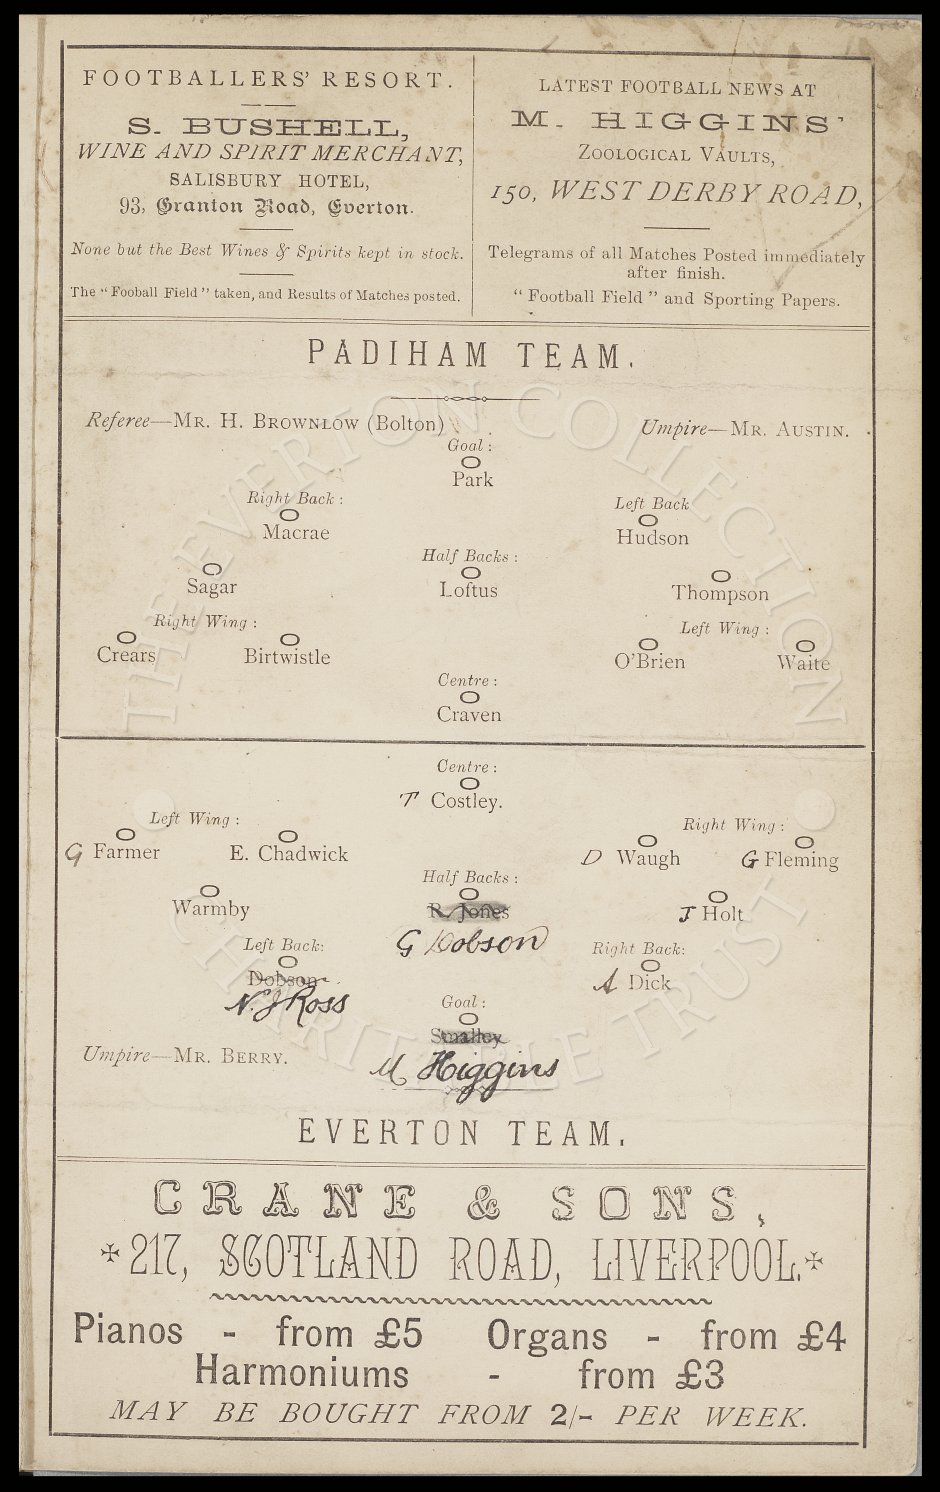 FOOTBALLERS' RESORT.
S. BUSHELL,
WINE AND SPIRIT MERCHANT,
SALISBURY HOTEL,
93, Granton Road, Everton.
None but the Best Wines & Spirits kept in stock.
The "Fooball Field" taken, and Results of Matches posted.
LATEST FOOTBALL NEWS AT
M. HIGGINS'
ZOOLOGICAL VAULTS,
150, WEST DERBY ROAD,
Telegrams of all Matches Posted immediately
after finish.
"Football Field" and Sporting Papers.
PADIHAM TEAM.
Referee—MR. H. BROWNLOW (Bolton)
Umpire—MR. AUSTIN.
Goal:
Park
Right Back:
Left Back
Macrae
Hudson
Half Backs:
Sagar
Loftus
Thompson
Right Wing:
Left Wing:
Crears
Birtwistle
O'Brien
Waite
Centre:
Craven
Centre:
T Costley.
Left Wing:
Right Wing:
G Farmer
E. Chadwick
D Waugh
G Fleming
Half Backs:
Warmby
R. Jones
J Holt
G Dobson
Left Back:
Right Back:
Dobson
A Dick
N. J Ross
Goal:
Smalley
Umpire—MR. BERRY.
M Higgins
EVERTON TEAM.
CRANE & SONS,
217, SCOTLAND ROAD, LIVERPOOL.
Pianos - from £5 Organs - from £4
Harmoniums - from £3
MAY BE BOUGHT FROM 2/- PER WEEK.
THE EVERTON COLLECTION
CHARITABLE TRUST